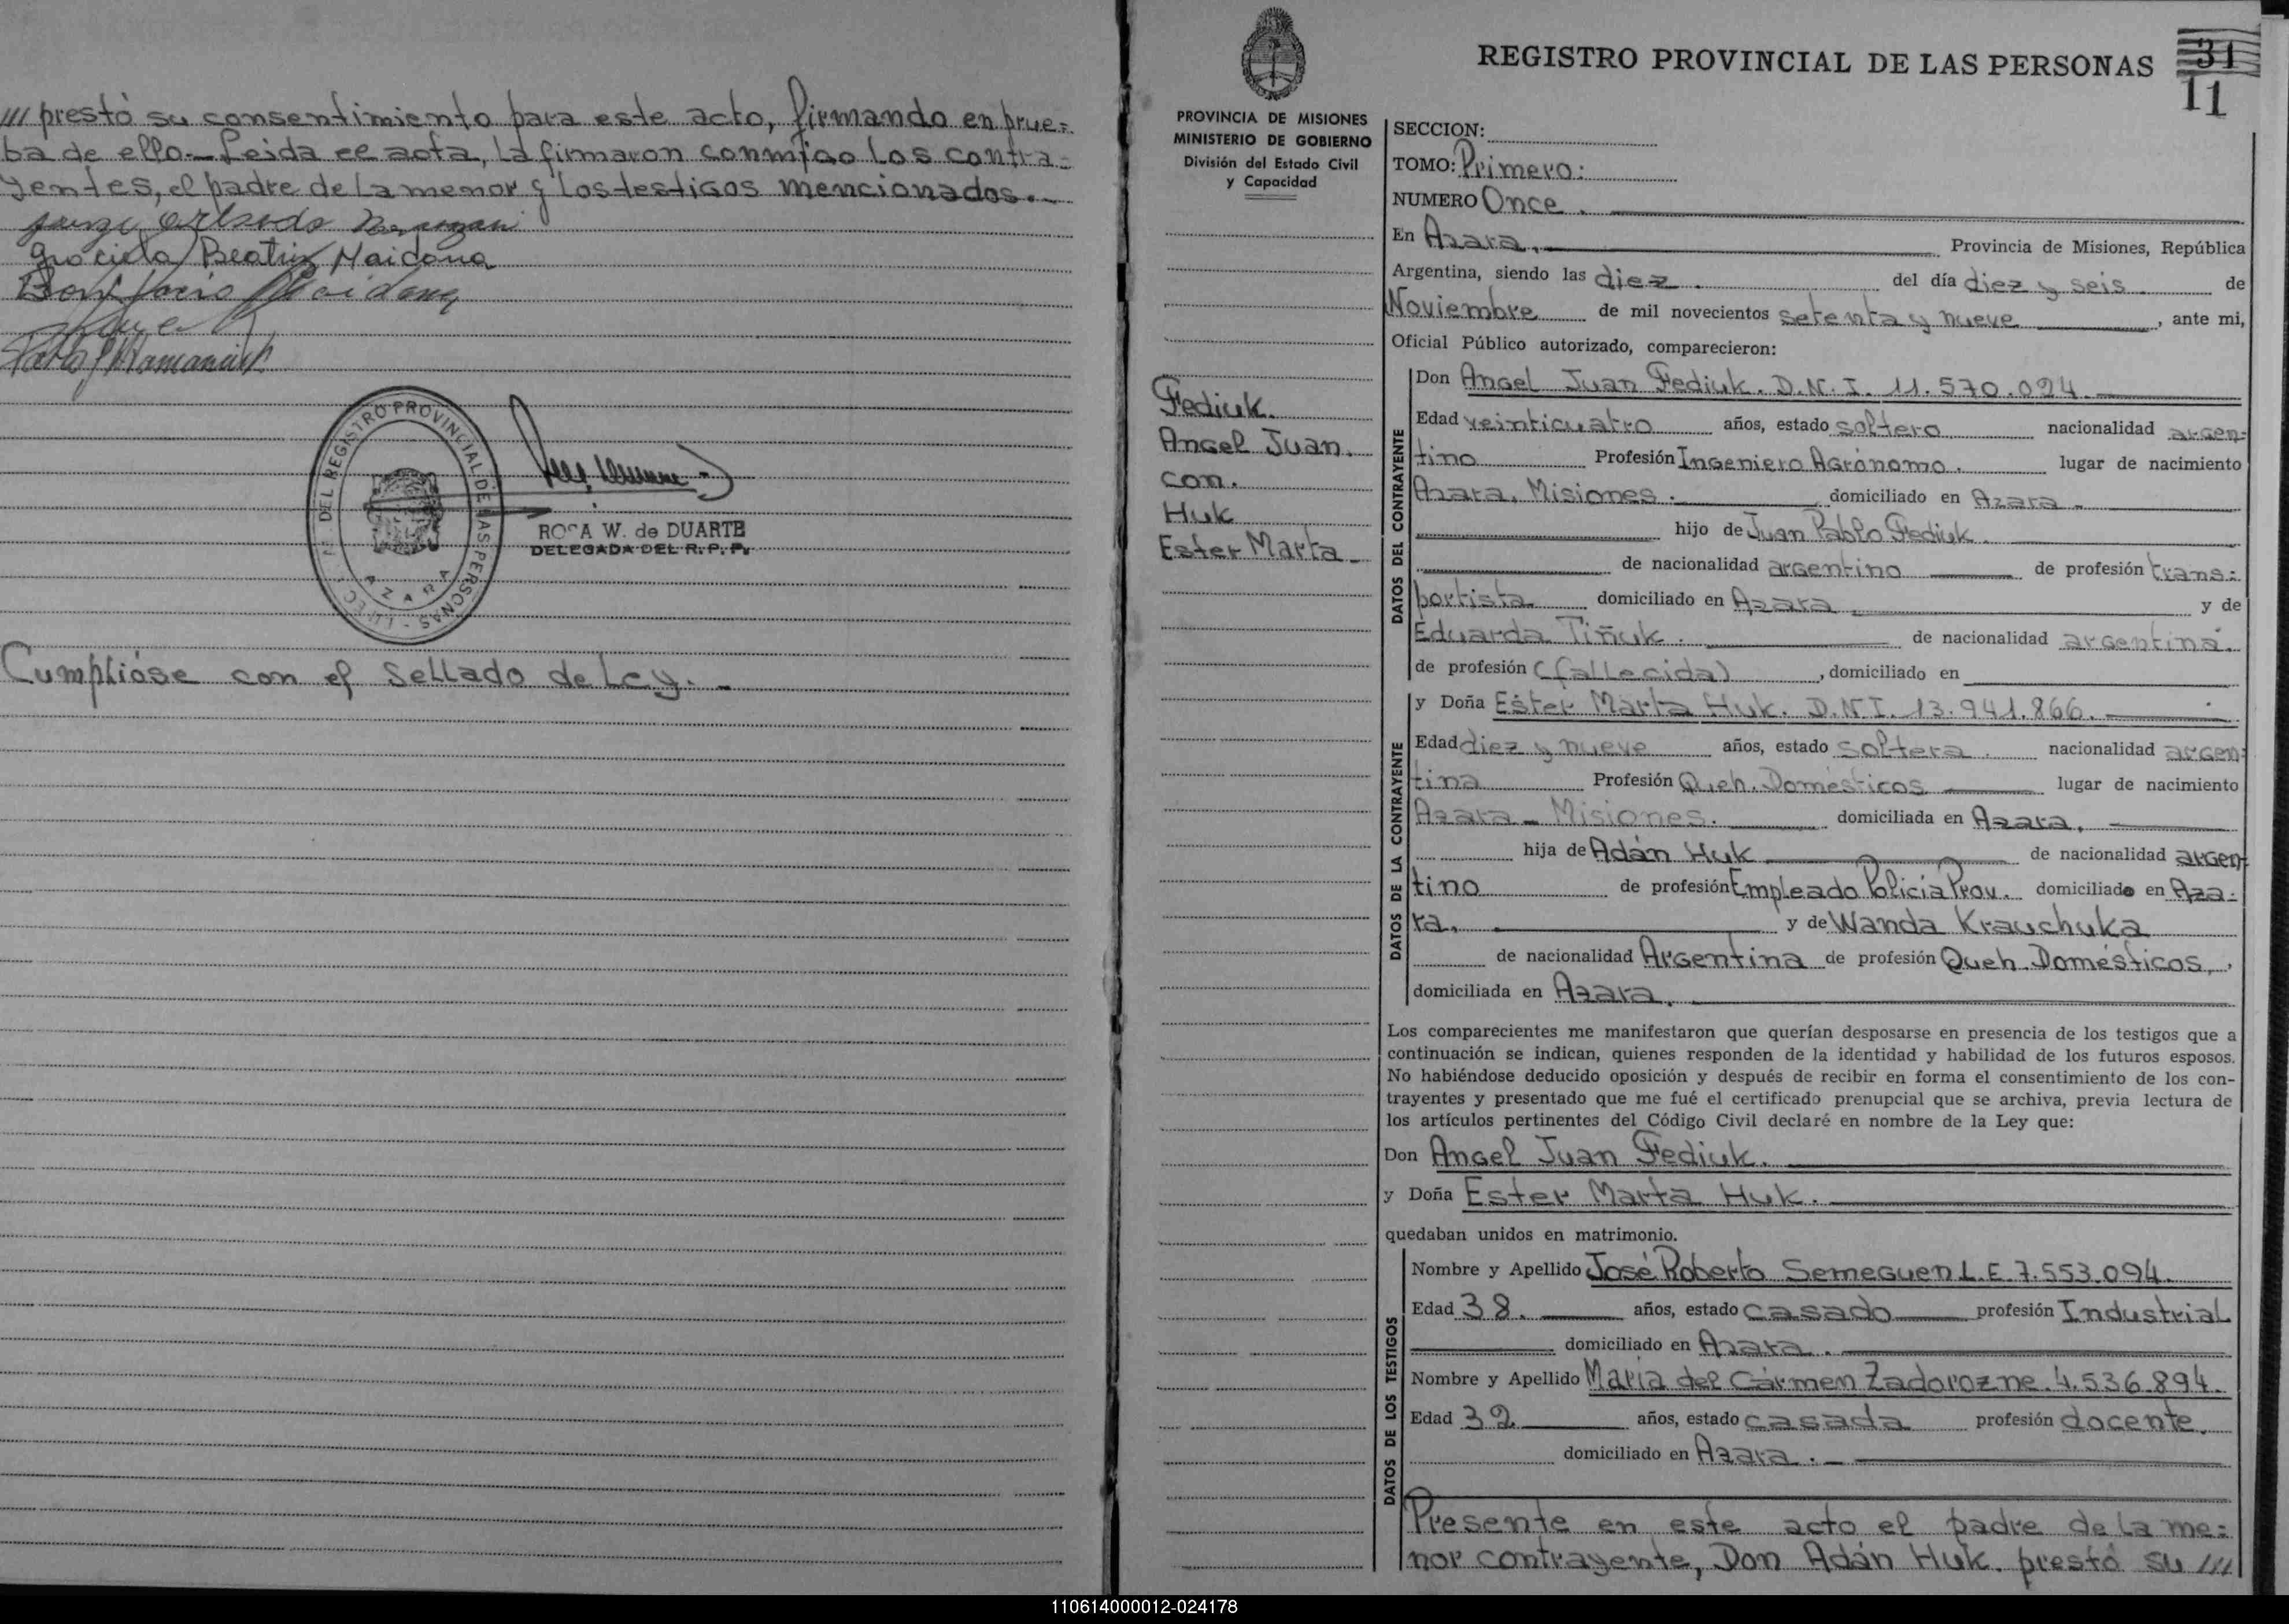 /// prestó su consentimiento para este acto, firmando en prue=
ba de ello._ Leida el acta, la firmaron conmigo los contra=
yentes, el padre de la menor y los testigos mencionados._
Orlando
Graciela Beatriz Maidana
Bonifacio Maidana
DEL REGISTRO PROVINCIAL DE LAS PERSONAS
AZARA
ROSA W. de DUARTE
DELEGADA DEL R. P. P.
Cumplióse con el sellado de Ley._
REGISTRO PROVINCIAL DE LAS PERSONAS
31
11
PROVINCIA DE MISIONES
MINISTERIO DE GOBIERNO
División del Estado Civil
y Capacidad
Fediuk.
Angel Juan.
con.
Huk
Ester Marta_
SECCION:
TOMO: Primero:
NUMERO Once.
En Azara. Provincia de Misiones, República
Argentina, siendo las diez. del día diez y seis de
Noviembre de mil novecientos setenta y nueve, ante mi,
Oficial Público autorizado, comparecieron:
DATOS DEL CONTRAYENTE
Don Angel Juan Fediuk. D.N.I. 11.570.024.
Edad veinticuatro años, estado soltero nacionalidad argen=
tino Profesión Ingeniero Agrónomo. lugar de nacimiento
Azara, Misiones. domiciliado en Azara.
hijo de Juan Pablo Fediuk.
de nacionalidad argentino de profesión trans=
portista domiciliado en Azara y de
Eduarda Tiñuk. de nacionalidad argentina.
de profesión (fallecida), domiciliado en
DATOS DE LA CONTRAYENTE
y Doña Ester Marta Huk. D.N.I. 13.941.866.
Edad diez y nueve años, estado soltera. nacionalidad argen=
tina Profesión Queh. Domésticos lugar de nacimiento
Azara - Misiones. domiciliada en Azara.
hija de Adán Huk de nacionalidad argen=
tino de profesión Empleado Policia Prov. domiciliado en Aza=
ra. y de Wanda Krauchuka
de nacionalidad Argentina de profesión Queh. Domésticos,
domiciliada en Azara.
Los comparecientes me manifestaron que querían desposarse en presencia de los testigos que a
continuación se indican, quienes responden de la identidad y habilidad de los futuros esposos.
No habiéndose deducido oposición y después de recibir en forma el consentimiento de los con-
trayentes y presentado que me fué el certificado prenupcial que se archiva, previa lectura de
los artículos pertinentes del Código Civil declaré en nombre de la Ley que:
Don Angel Juan Fediuk.
y Doña Ester Marta Huk.
quedaban unidos en matrimonio.
DATOS DE LOS TESTIGOS
Nombre y Apellido José Roberto Semeguen L.E. 7.553.094.
Edad 38. años, estado casado profesión Industrial
domiciliado en Azara.
Nombre y Apellido María del Cármen Zadorozne. 4.536.894.
Edad 32 años, estado casada profesión docente.
domiciliado en Azara.
Presente en este acto el padre de la me=
nor contrayente, Don Adán Huk. prestó su ///
110614000012-024178